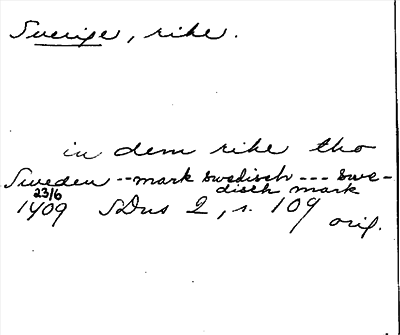 Sverige, rike.
in dem rike tho
Sweden -- mark swedisch --- swe-
disch mark
23/6
1409 SDns 2, s. 109
orig.